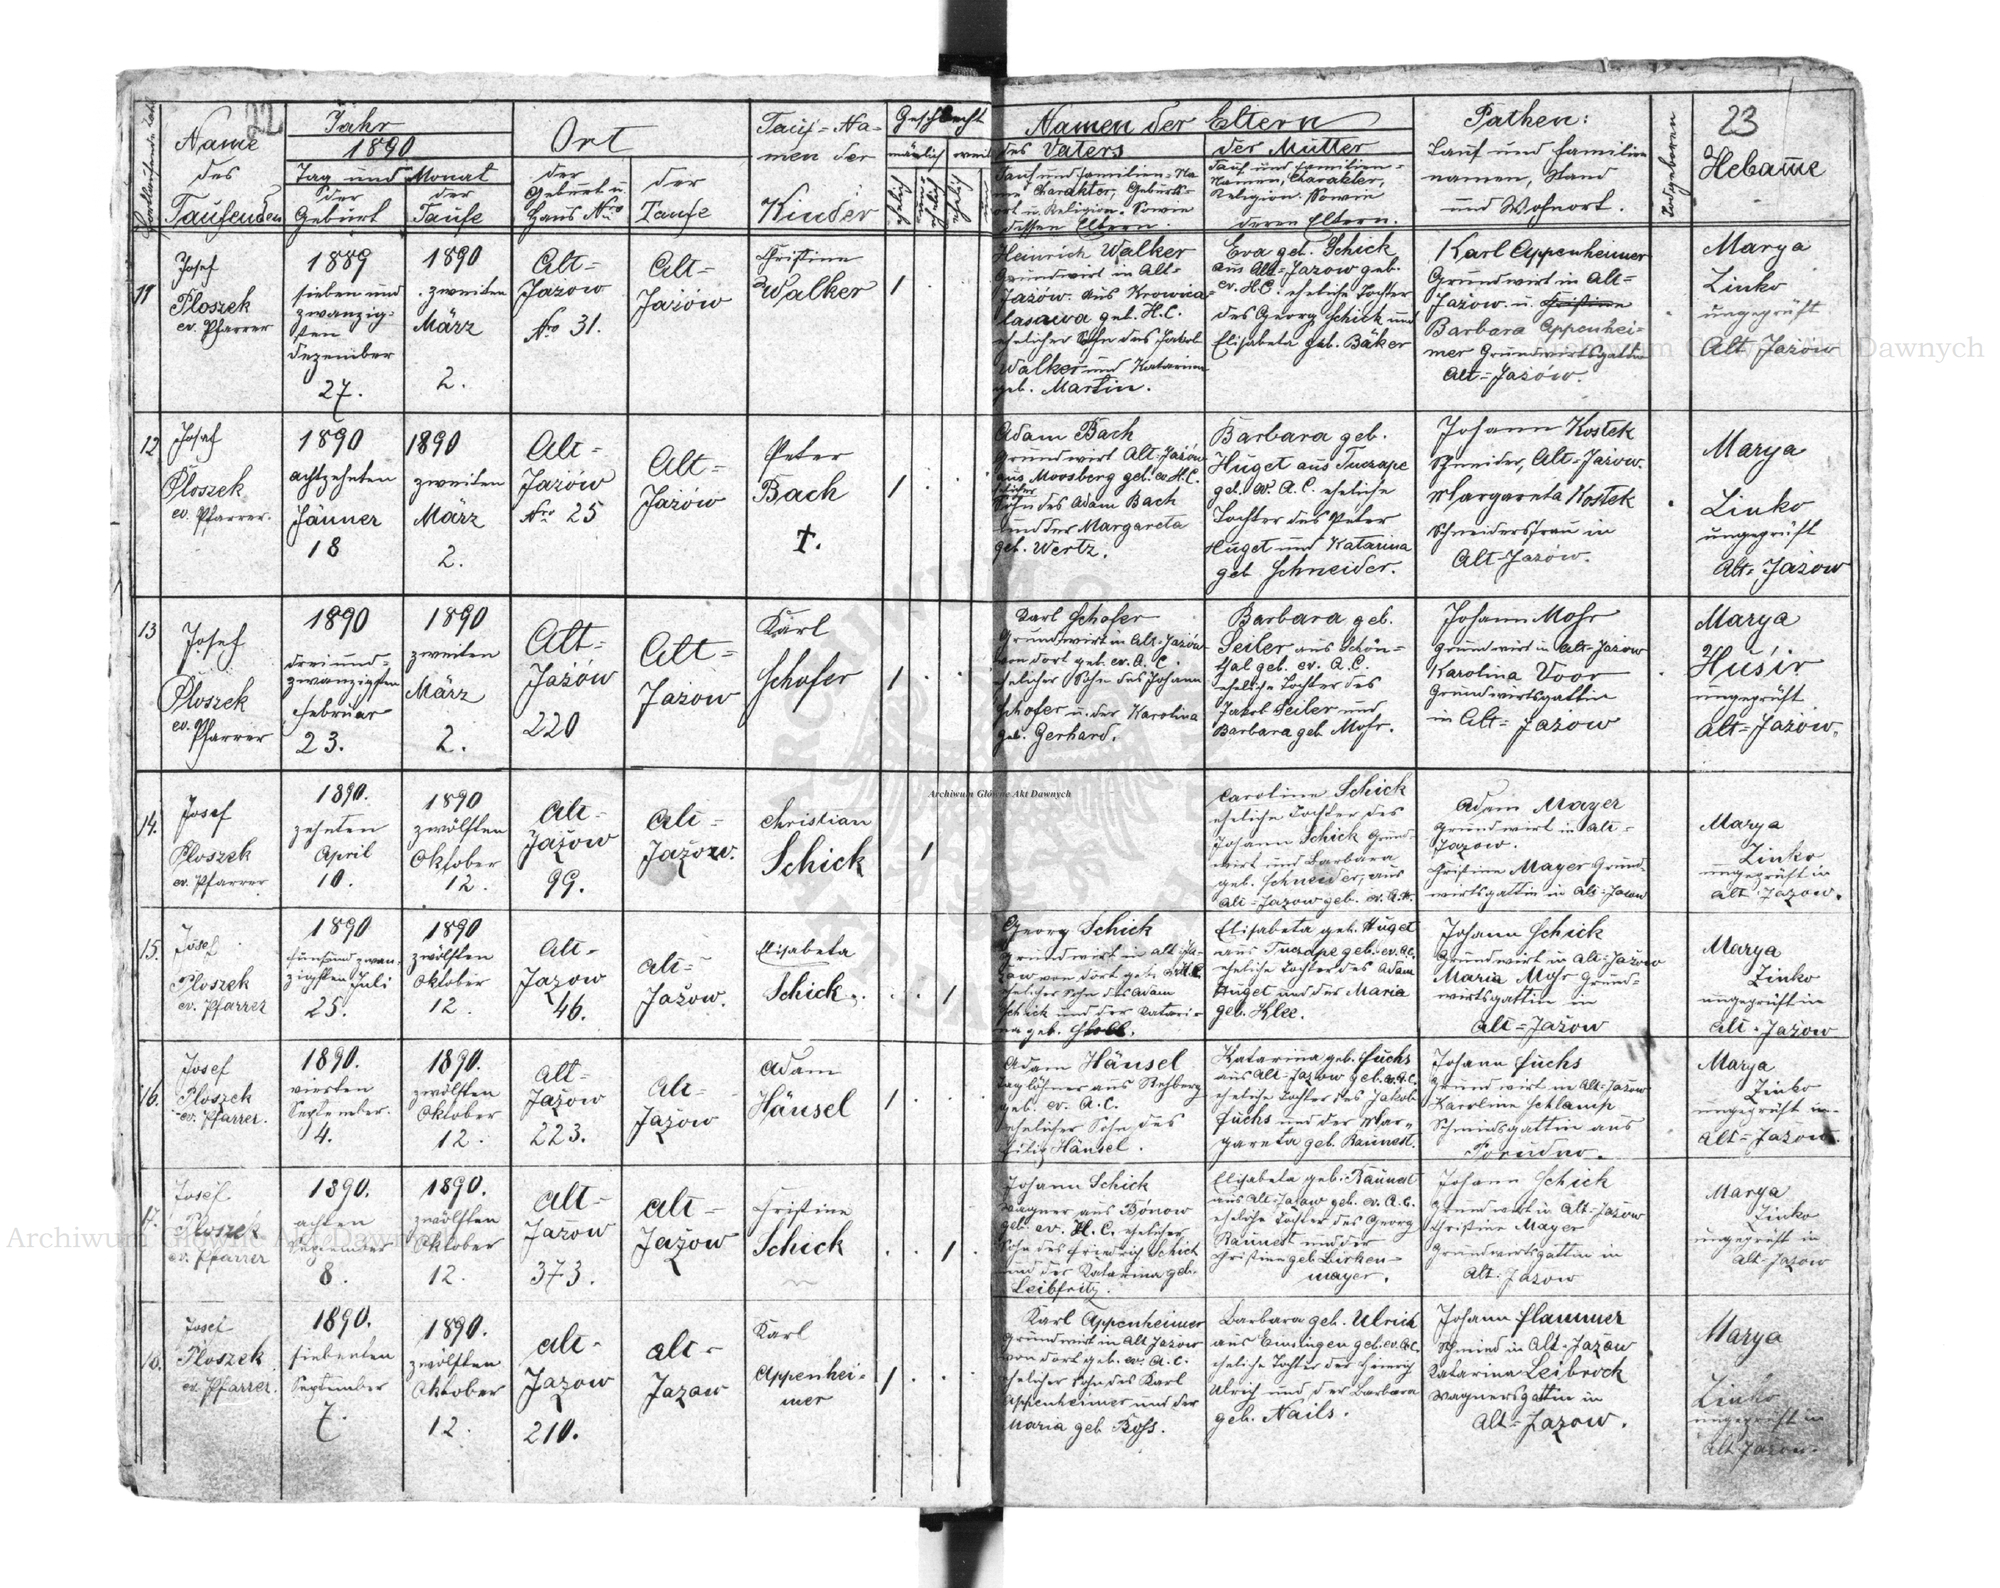 22
Fortlaufende Zahl
Name
des
Taufenden
Jahr
1890
Tag und Monat
der
Geburt
der
Taufe
Ort
der
Geburt u.
Haus Nro
der
Taufe
Tauf-Na-
men der
Kinder
Geschlecht
mänlich weibl
ehelich
unehelich
ehelich
Namen der Eltern
des Vaters
Tauf und Familien-Na-
me Charakter, Geburts-
ort u. Religion. Sowie
dessen Eltern.
der Mutter
Tauf und Familien-
Namen, Charakter,
Religion. Sowie
deren Eltern.
Pathen:
Tauf und Familien
namen, Stand
und Wohnort.
Todgeboren
23
Hebame
11
Josef
Ploszek
ev. Pfarrer
1889
sieben und
zwanzig-
sten
Dezember
27.
1890
zweiten
März
2.
Alt-
Jazow
Nro 31.
Alt-
Jażów
Christine
Walker
1
Heinrich Walker
Grundwirt in Alt-
Jażów. aus Krowica
lasawa geb. H.C.
ehelicher Sohn des Jakob
Walker und Katarina
geb. Martin.
Eva geb. Schick
aus Alt-Jazow geb.
ev. H.C. eheliche Tochter
des Georg Schick und
Elisabeta geb. Bäker
Karl Appenheimer
Grundwirt in Alt-
Jażow. u. Christine
Barbara Appenhei-
mer Grundwirtsgattin
Alt-Jażów.
Marya
Zinko
ungeprüft
Alt Jażów
12
Josef
Ploszek
ev. Pfarrer.
1890
achtzehnten
Jänner
18
1890
zweiten
März
2.
Alt-
Jażów
Nro 25
Alt-
Jażów
Peter
Bach
†.
1
Adam Bach
Grundwirt Alt-Jażów
aus Moosberg geb. ev. H.C.
ehelicher
Sohn des Adam Bach
und der Margareta
geb. Wertz.
Barbara geb.
Huget aus Tuczape
geb. ev. A.C. eheliche
Tochter des Peter
Huget und Katarina
geb Schneider.
Johann Kostek
Schneider, Alt-Jażow.
Margareta Kostek
Schneidersfrau in
Alt-Jazów.
Marya
Zinko
ungeprüft
Alt-Jażow
13
Josef
Ploszek
ev. Pfarrer
1890
dreiund-
zwanzigsten
Februar
23.
1890
zweiten
März
2.
Alt-
Jażów
220
Alt-
Jażow
Karl
Schofer
1
Karl Schofer
Grundwirt in Alt-Jażów
von dort geb. ev. A.C.
ehelicher Sohn des Johann
Schofer u. der Karolina
geb. Gerhard.
Barbara geb.
Seiler aus Schön-
thal geb. ev. A.C.
eheliche Tochter des
Jakob Seiler und
Barbara geb Mohr.
Johann Mohr
Grundwirt in Alt-Jażow
Karolina Voor
Grundwirtsgattin
in Alt-Jazow
Marya
Husir
ungeprüft
Alt-Jażow.
14.
Josef
Ploszek
ev. Pfarrer
1890.
zehnten
April
10.
1890
zwölften
Oktober
12.
Alt-
Jażow
99.
Alt-
Jażow.
Christian
Schick
1
Caroline Schick
eheliche Tochter des
Johann Schick Grund-
wirt und Barbara
geb. Schneider, aus
Alt-Jazow geb. ev. A.C.
Adam Mayer
Grundwirt in Alt-
Jazow.
Christine Mayer Grund-
wirtsgattin in Alt-Jazow
Marya
Zinko
ungeprüft in
Alt Jazow.
15.
Josef
Ploszek
ev. Pfarrer
1890
fünfundzwan-
zigsten Juli
25.
1890
zwölften
Oktober
12.
Alt-
Jazow
46.
Alt-
Jażow.
Elisabeta
Schick.
1
Georg Schick
Grundwirt in Alt Ja-
zow von dort geb. ev. H.C.
ehelicher Sohn des Adam
Schick und der Katari-
na geb.
Elisabeta geb. Huget
aus Tuczape geb. ev. A.C.
eheliche Tochter des Adam
Huget und der Maria
geb. Klee.
Johann Schick
Grundwirt in Alt-Jażow
Maria Mohr Grund-
wirtsgattin in
Alt-Jażow
Marya
Zinko
ungeprüft in
Alt-Jażow
16.
Josef
Ploszek
ev. Pfarrer.
1890.
vierten
September.
4.
1890.
zwölften
Oktober
12.
Alt-
Jażow
223.
Alt-
Jażow
Adam
Hänsel
1
Adam Hänsel
Taglöhner aus Rehberg
geb. ev. A.C.
ehelicher Sohn des
Filip Hänsel.
Katarina geb. Fuchs
aus Alt-Jazow geb. ev. A.C.
eheliche Tochter des Jakob
Fuchs und der Mar-
gareta geb. Raunest.
Johann Fuchs
Grundwirt in Alt-Jażow
Karoline Schlamp
Schmiedsgattin aus
Porudno.
Marya
Zinko
ungeprüft in
Alt-Jażow.
17.
Josef
Ploszek
ev. Pfarrer
1890.
achten
September
8.
1890.
zwölften
Oktober
12.
Alt-
Jazow
373.
Alt-
Jażow
Christine
Schick
1
Johann Schick
Wagner aus Bonow
geb. ev. H.C. ehelicher
Sohn des Friedrich Schick
und der Katarina geb.
Leibfritz.
Elisabeta geb. Raunest
aus Alt-Jazow geb. ev. A.C.
eheliche Tochter des Georg
Raunest und der
Christine geb. Birken-
mayer.
Johann Schick
Grundwirt in Alt-Jażow
Christine Mayer
Grundwirtsgattin in
Alt-Jazow
Marya
Zinko
ungeprüft in
Alt-Jazow
18.
Josef
Ploszek
ev. Pfarrer.
1890.
siebenten
September
7.
1890.
zwölften
Oktober
12.
Alt-
Jazow
210.
Alt-
Jazow
Karl
Appenhei-
mer
1
Karl Appenheimer
Grundwirt in Alt Jazow
von dort geb. ev. A.C.
ehelicher Sohn des Karl
Appenheimer und der
Maria geb Boss.
Barbara geb. Ulrich
aus Einsingen geb. ev. A.C.
eheliche Tochter des Heinrich
Ulrich und der Barbara
geb. Nails.
Johann Flammer
Schmied in Alt-Jażow
Katarina Leibrock
Wagnersgattin in
Alt-Jazow.
Marya
Zinko
ungeprüft in
Alt Jazow.
Archiwum Główne Akt Dawnych
Archiwum Główne Akt Dawnych
Archiwum Główne Akt Dawnych